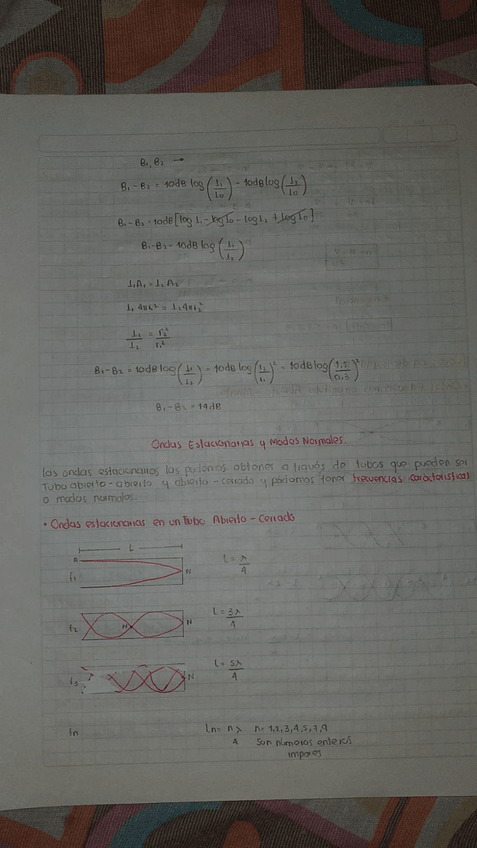 B₁, B₂ →
B₁ - B₂ = 10dB log (I₁/I₀) - 10dB log (I₂/I₀)
B₁ - B₂ = 10dB [log I₁ - log I₀ - log I₂ + log I₀]
B₁ - B₂ = 10dB log (I₁/I₂)
I₁A₁ = I₂A₂
I₁ 4πr₁² = I₂ 4πr₂²
I₁/I₂ = r₂²/r₁²
B₁ - B₂ = 10dB log (I₁/I₂) = 10dB log (r₂/r₁)² = 10dB log (1,5/0,3)²
B₁ - B₂ = 14dB
Ondas Estacionarias y Modos Normales
las ondas estacionarias las podemos obtener a través de tubos que pueden ser
Tubo abierto-abierto y abierto-cerrado y podemos tener frecuencias características
o modos normales.
• Ondas estacionarias en un Tubo Abierto-Cerrado
L
A
f₁
N
L = λ/4
f₂
N
N
L = 3λ/4
N
L = 5λ/4
Ln = nλ/4
Son números enteros
impares